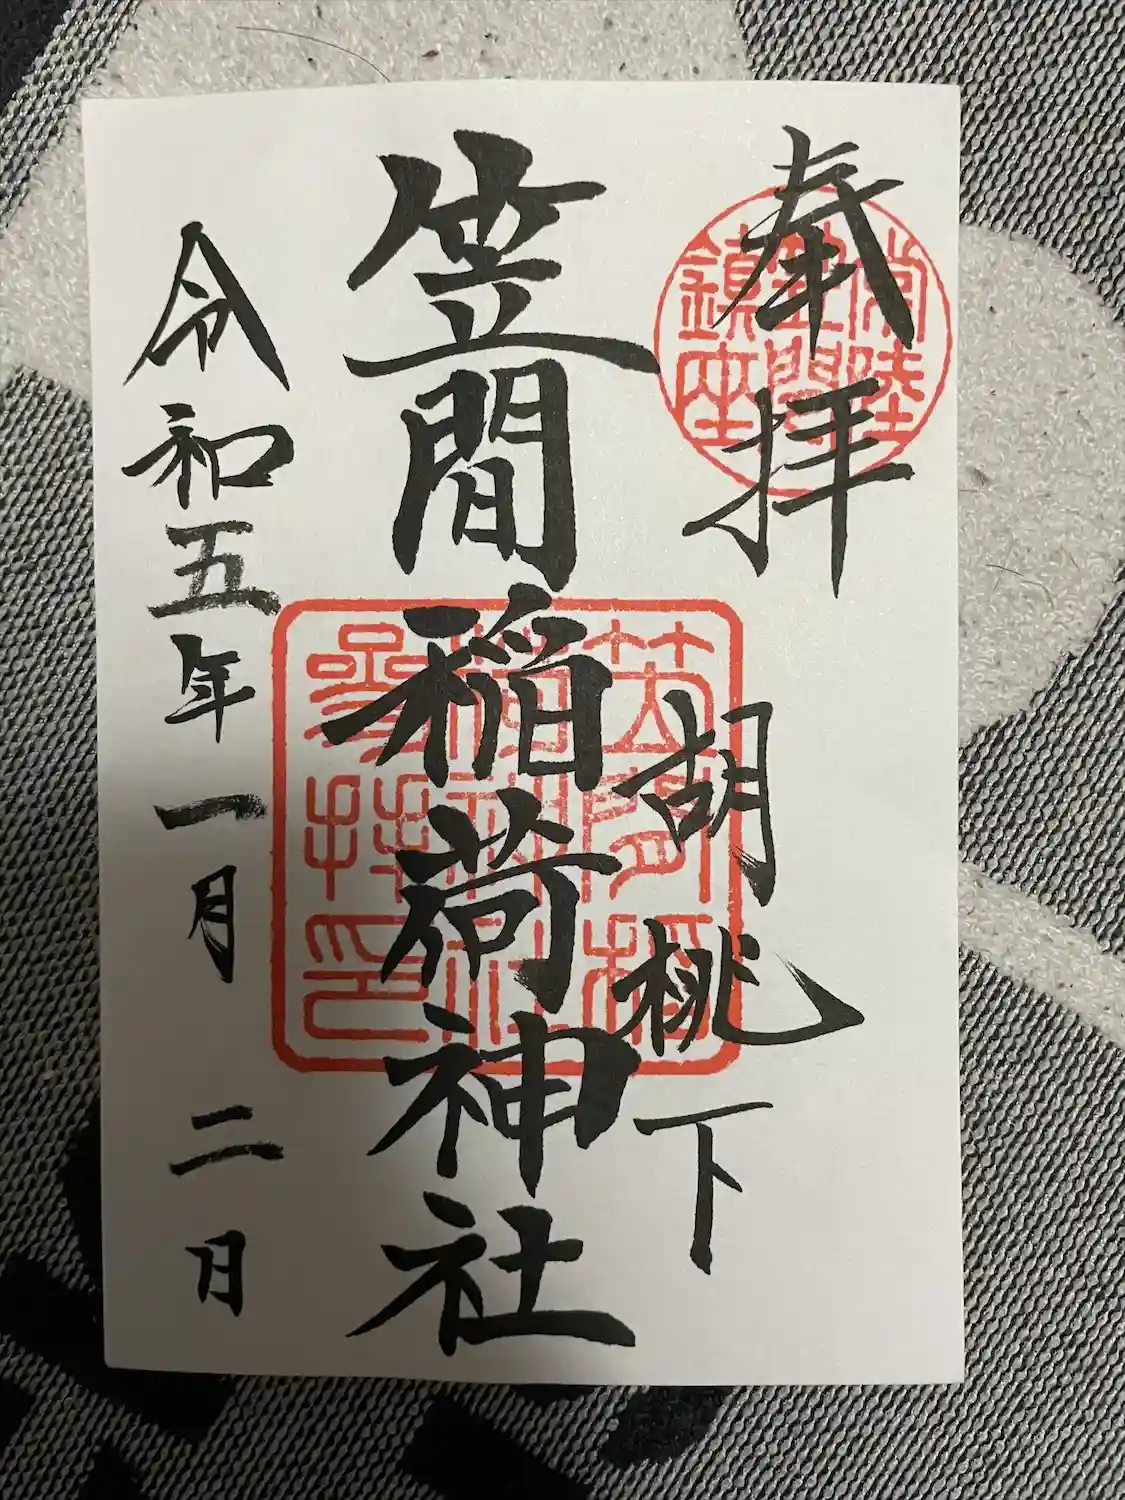 奉拝
常陸
笠間
鎮座
胡桃下
笠間稲荷神社
笠間稲
荷神社
参拝印
令和五年一月二日